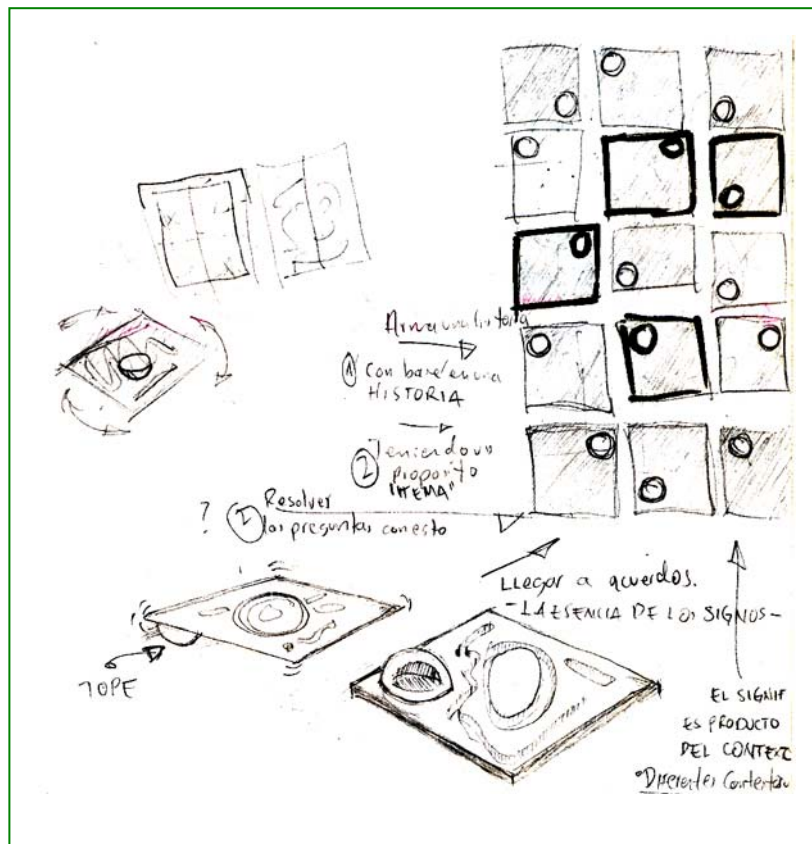 Arma una historia
① Con base en una
HISTORIA
② Teniendo un
proposito
"TEMA"
? ① Resolver
las preguntas con esto
Llegar a acuerdos.
- LA ESENCIA DE LOS SIGNOS -
TOPE
EL SIGNIF
ES PRODUCTO
DEL CONTEXT
"Diferentes Contextos